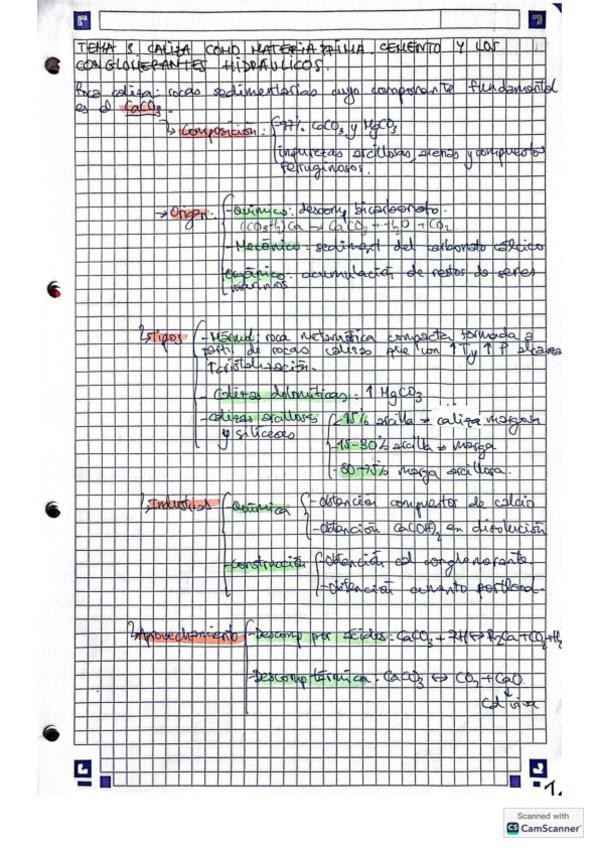 TEMA 8. CALIZA COMO MATERIA PRIMA. CEMENTO Y LOS
CONGLOMERANTES HIDRÁULICOS.
Roca caliza: rocas sedimentarias cuyo componente fundamental
es el CaCO3.
→ Composición: -97% CaCO3 y MgCO3
impurezas arcillosas, arenas y compuestos
ferruginosos.
→ Origen: -Químico: descomp bicarbonato.
Ca → CaCO3 + H2O + CO2
-Mecánico: sediment del carbonato cálcico
Orgánico: acumulación de restos de seres
marinos
Tipos -Mármol: roca metamórfica compacta formada a
partir de rocas calizas que con ↑T y ↑P alcanza
↑cristalización.
- Calizas dolomíticas: ↑ MgCO3
-calizas arcillosas y silíceas
-15% arcilla → caliza margosa
-15-30% arcilla → marga
-30-75% marga arcillosa.
Industrias -Química -obtención compuestos de calcio
-obtención Ca(OH)2 en disolución
-construcción -obtención cal conglomerante.
-obtención cemento portland.
Aprovechamiento -Descomp por ácidos: CaCO3 +
-Descomp térmica: CaCO3 ↔ CO2 + CaO
↓
Cal viva
1.
Scanned with
CS CamScanner